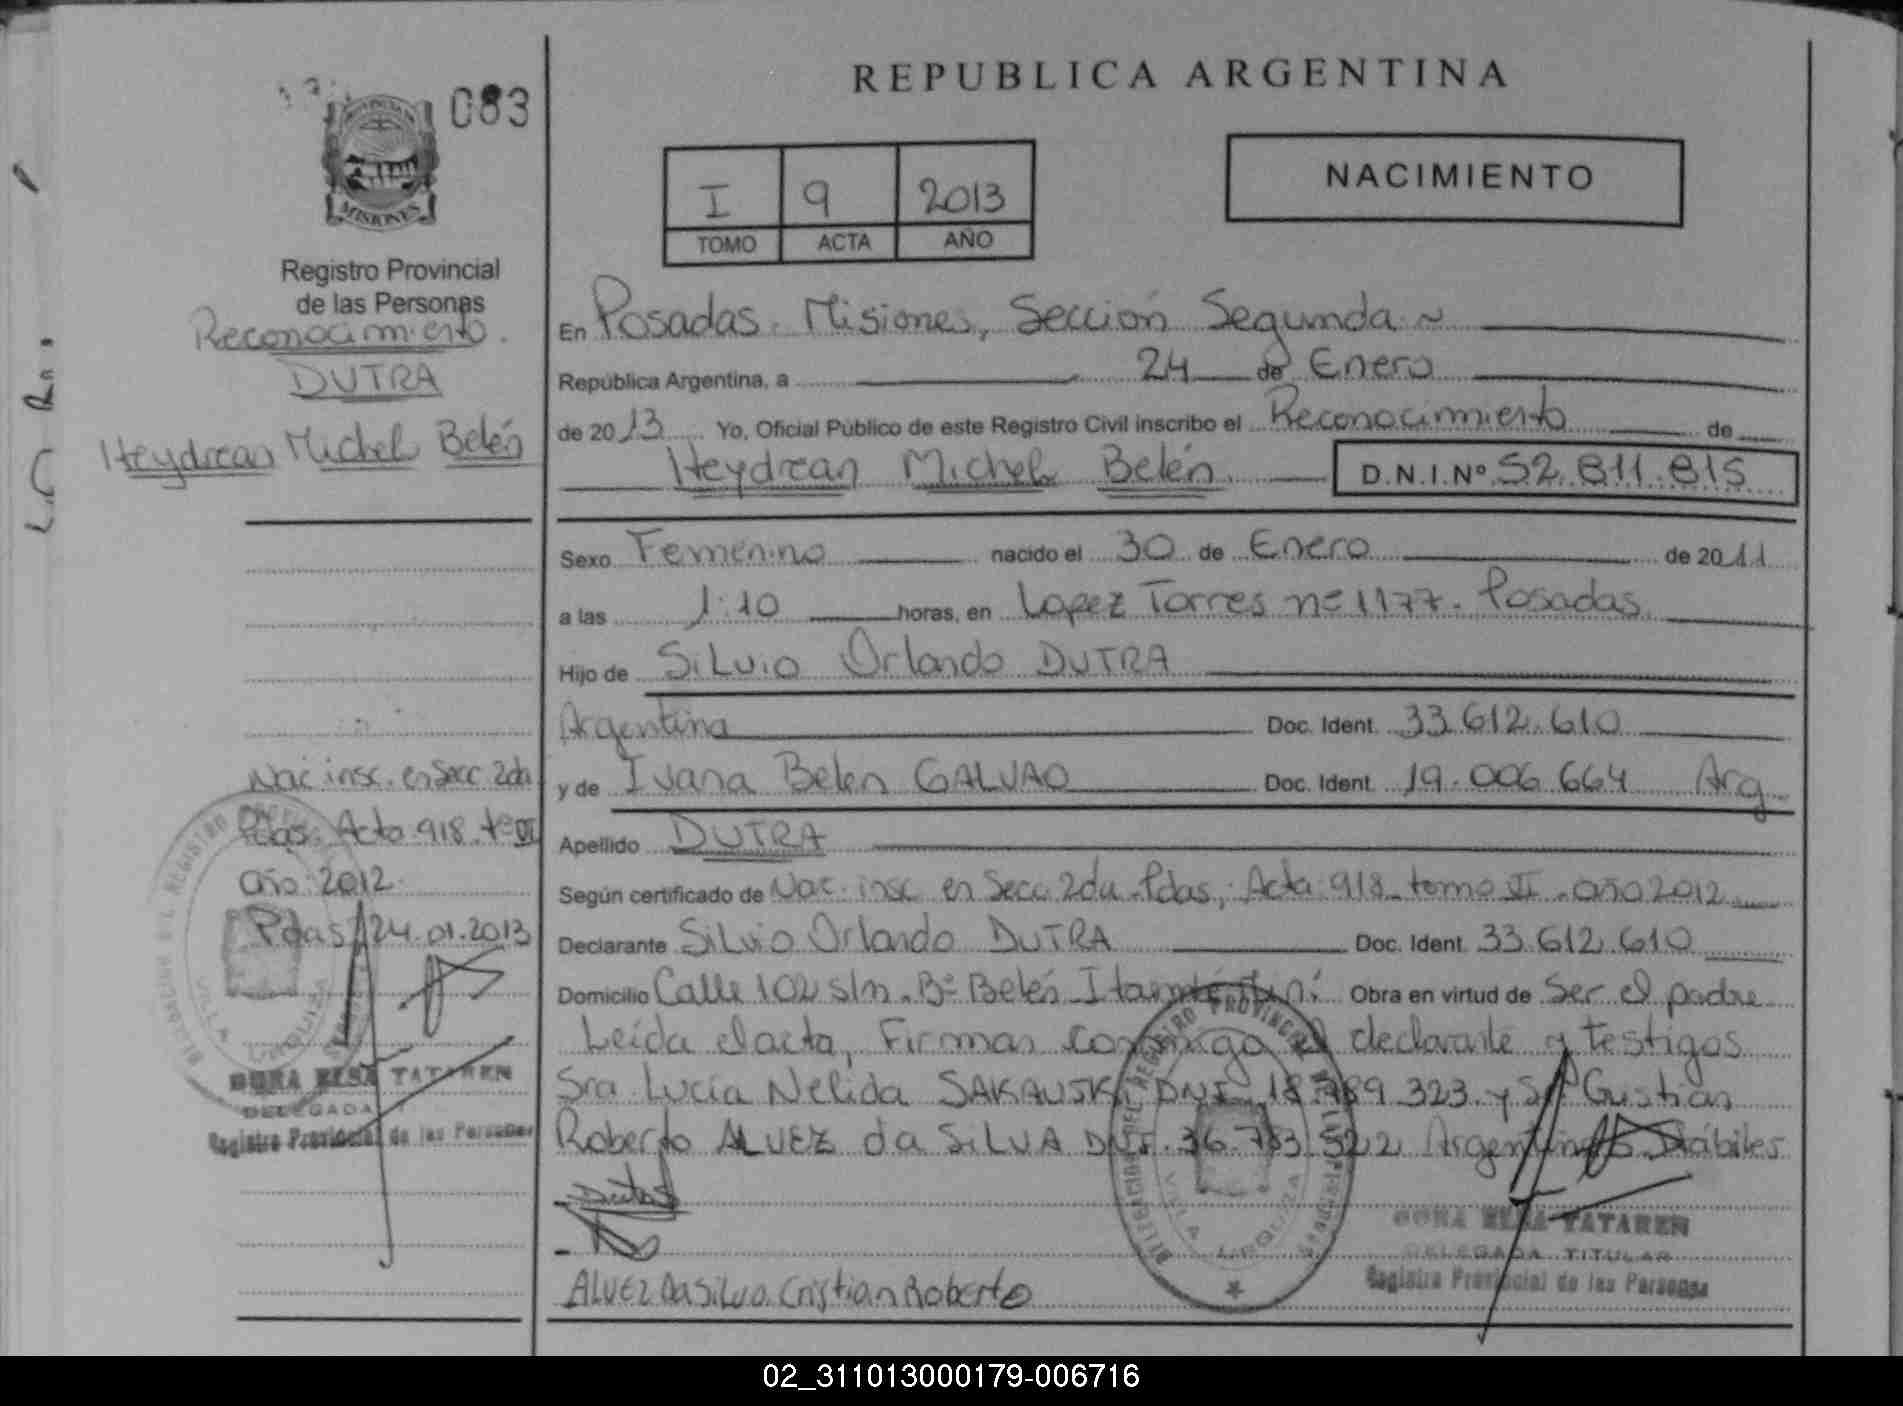 083
MISIONES
Registro Provincial
de las Personas
Reconocimiento.
DUTRA
Heydrean Michel Belén
Nac. insc. en Secc 2da
Pdas. Acta 918. tº II
año 2012.
Pdas 24.01.2013
DORA ELSA TATAREN
DELEGADA
Registro Provincial de las Personas
REPUBLICA ARGENTINA
I 9 2013
TOMO ACTA AÑO
NACIMIENTO
En Posadas. Misiones, Sección Segunda
República Argentina, a 24 de Enero
de 2013 Yo, Oficial Público de este Registro Civil inscribo el Reconocimiento de
Heydrean Michel Belén D.N.I.Nº 52.811.815
Sexo Femenino nacido el 30 de Enero de 2011
a las 1:10 horas, en Lopez Torres nº 1177. Posadas.
Hijo de Silvio Orlando DUTRA
Argentina Doc. Ident. 33.612.610
y de Ivana Belen GALVAO Doc. Ident. 19.006.664 Arg.
Apellido DUTRA
Según certificado de Nac. insc en Secc. 2da. Pdas, Acta 918 tomo II. año 2012
Declarante Silvio Orlando DUTRA Doc. Ident. 33.612.610
Domicilio Calle 102 s/n. Bº Belén Obra en virtud de Ser el padre
Leída el acta, Firman conmigo el declarante y testigos
Sra. Lucía Nelida SAKAUSKI DNI. 18.789.323 y Sr. Cristian
Roberto ALVEZ da SILVA DNI. 36.783.522 Argentinos hábiles
Dutra
ALVEZ Da Silva Cristian Roberto
DORA ELSA TATAREN
DELEGADA TITULAR
Registro Provincial de las Personas
02_311013000179-006716